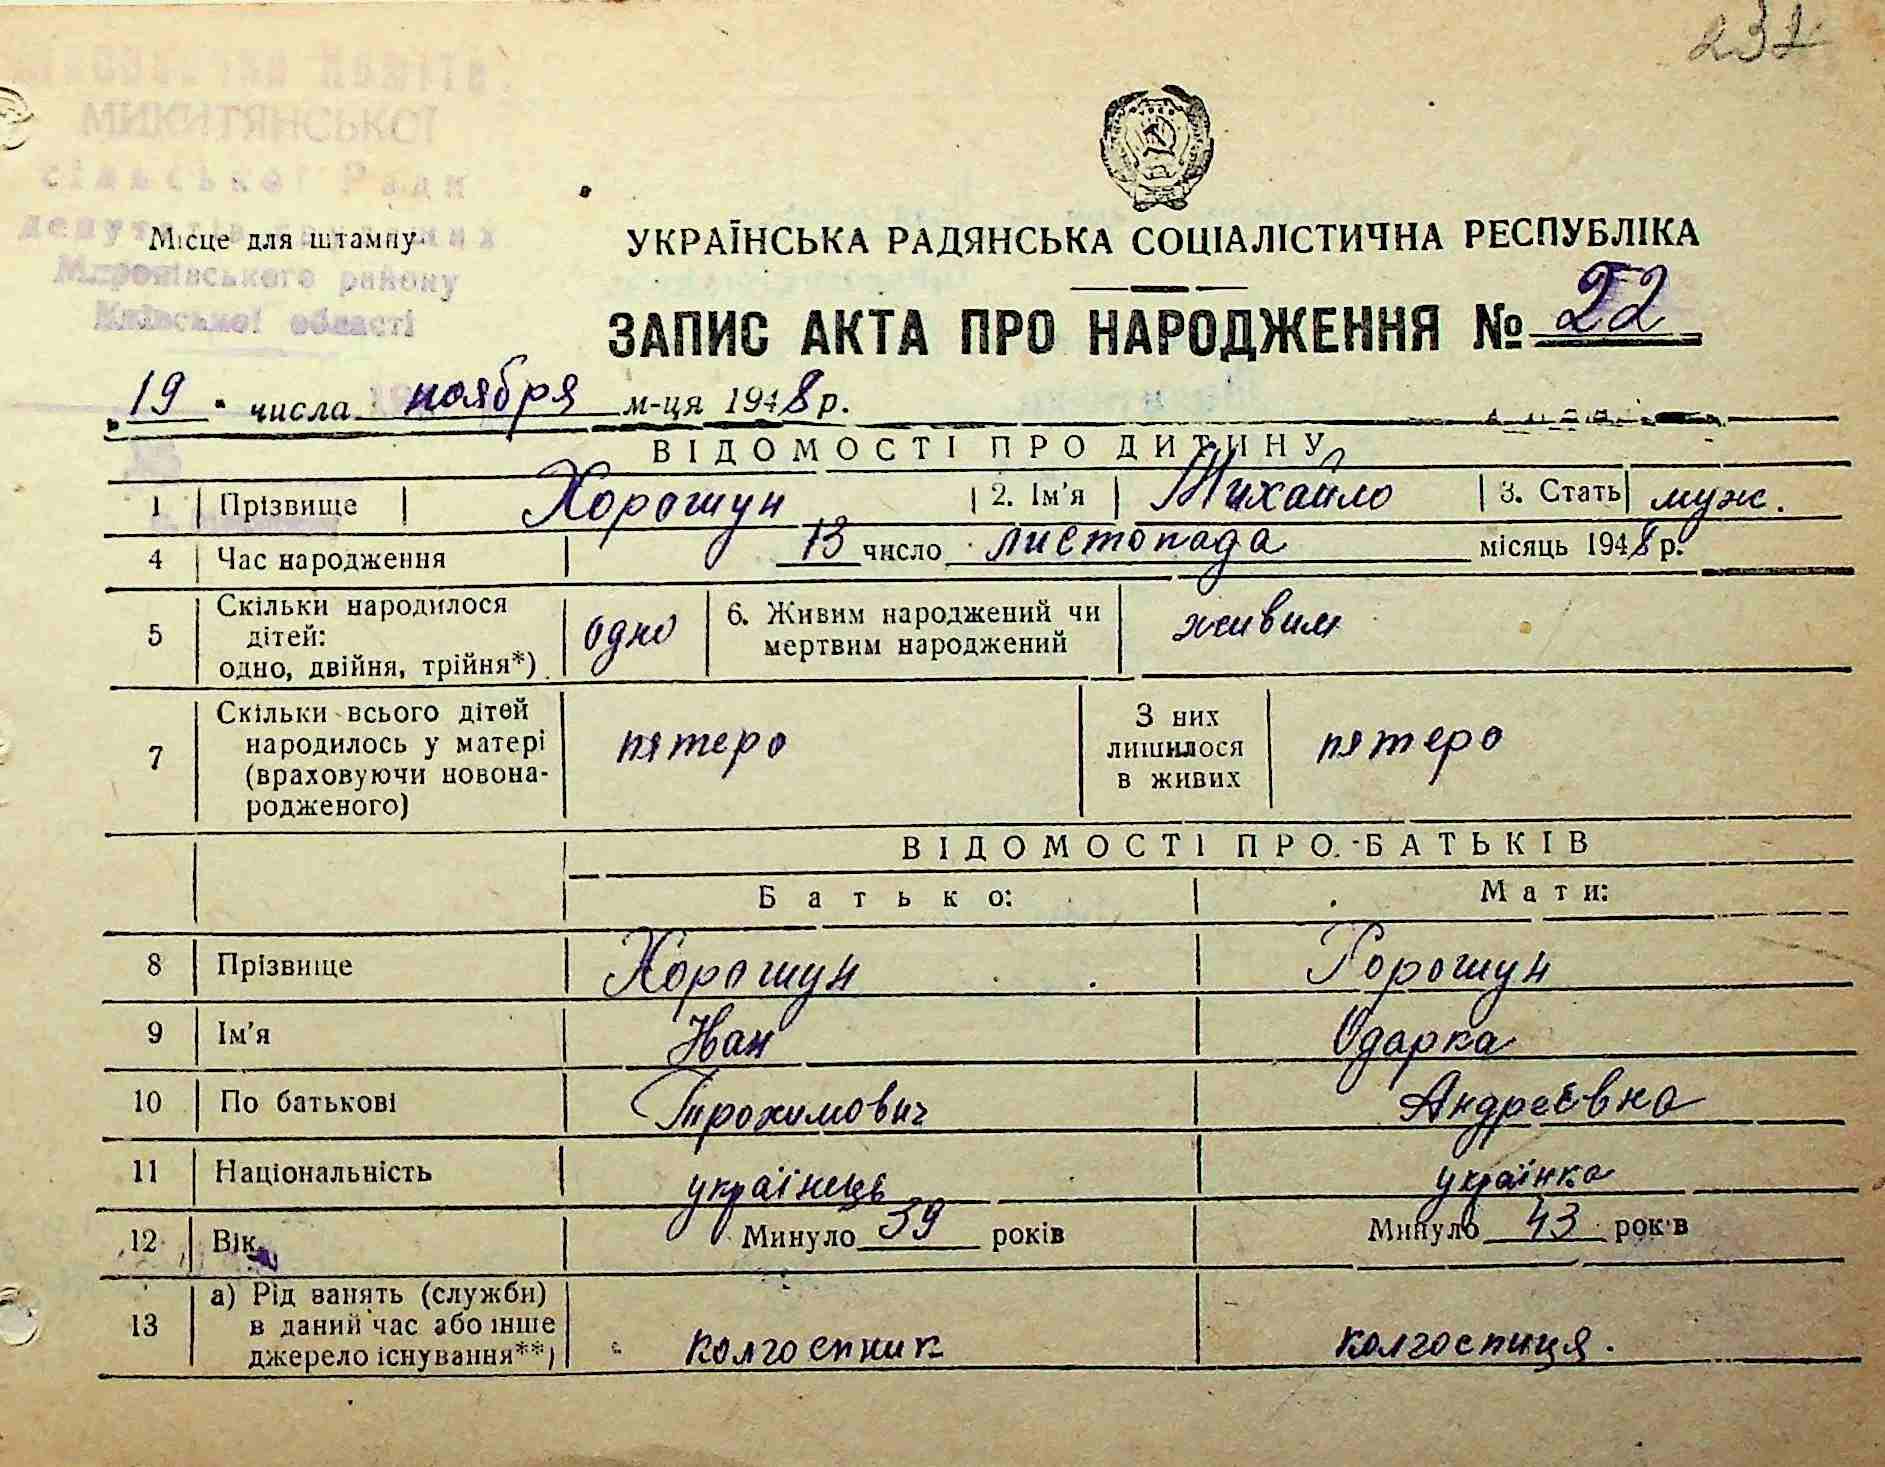 232
МИКИТЯНСЬКОЇ
сільської Ради
депутатів трудящих
Миронівського району
Київської області
Місце для штампу
УКРАЇНСЬКА РАДЯНСЬКА СОЦІАЛІСТИЧНА РЕСПУБЛІКА
ЗАПИС АКТА ПРО НАРОДЖЕННЯ № 22
19 числа ноября м-ця 1948 р.
ВІДОМОСТІ ПРО ДИТИНУ
1 Прізвище Хорошун 2. Ім'я Михайло 3. Стать муж.
4 Час народження 13 число листопада місяць 1948 р.
5 Скільки народилося дітей: одно, двійня, трійня*) одно 6. Живим народжений чи мертвим народжений живим
7 Скільки всього дітей народилось у матері (враховуючи новонародженого) пятеро З них лишилося в живих пятеро
ВІДОМОСТІ ПРО БАТЬКІВ
Батько: Мати:
8 Прізвище Хорошун Хорошун
9 Ім'я Іван Одарка
10 По батькові Трохимович Андреєвна
11 Національність українець українка
12 Вік Минуло 39 років Минуло 43 років
13 а) Рід занять (служби) в даний час або інше джерело існування**) колгоспник колгоспиця.